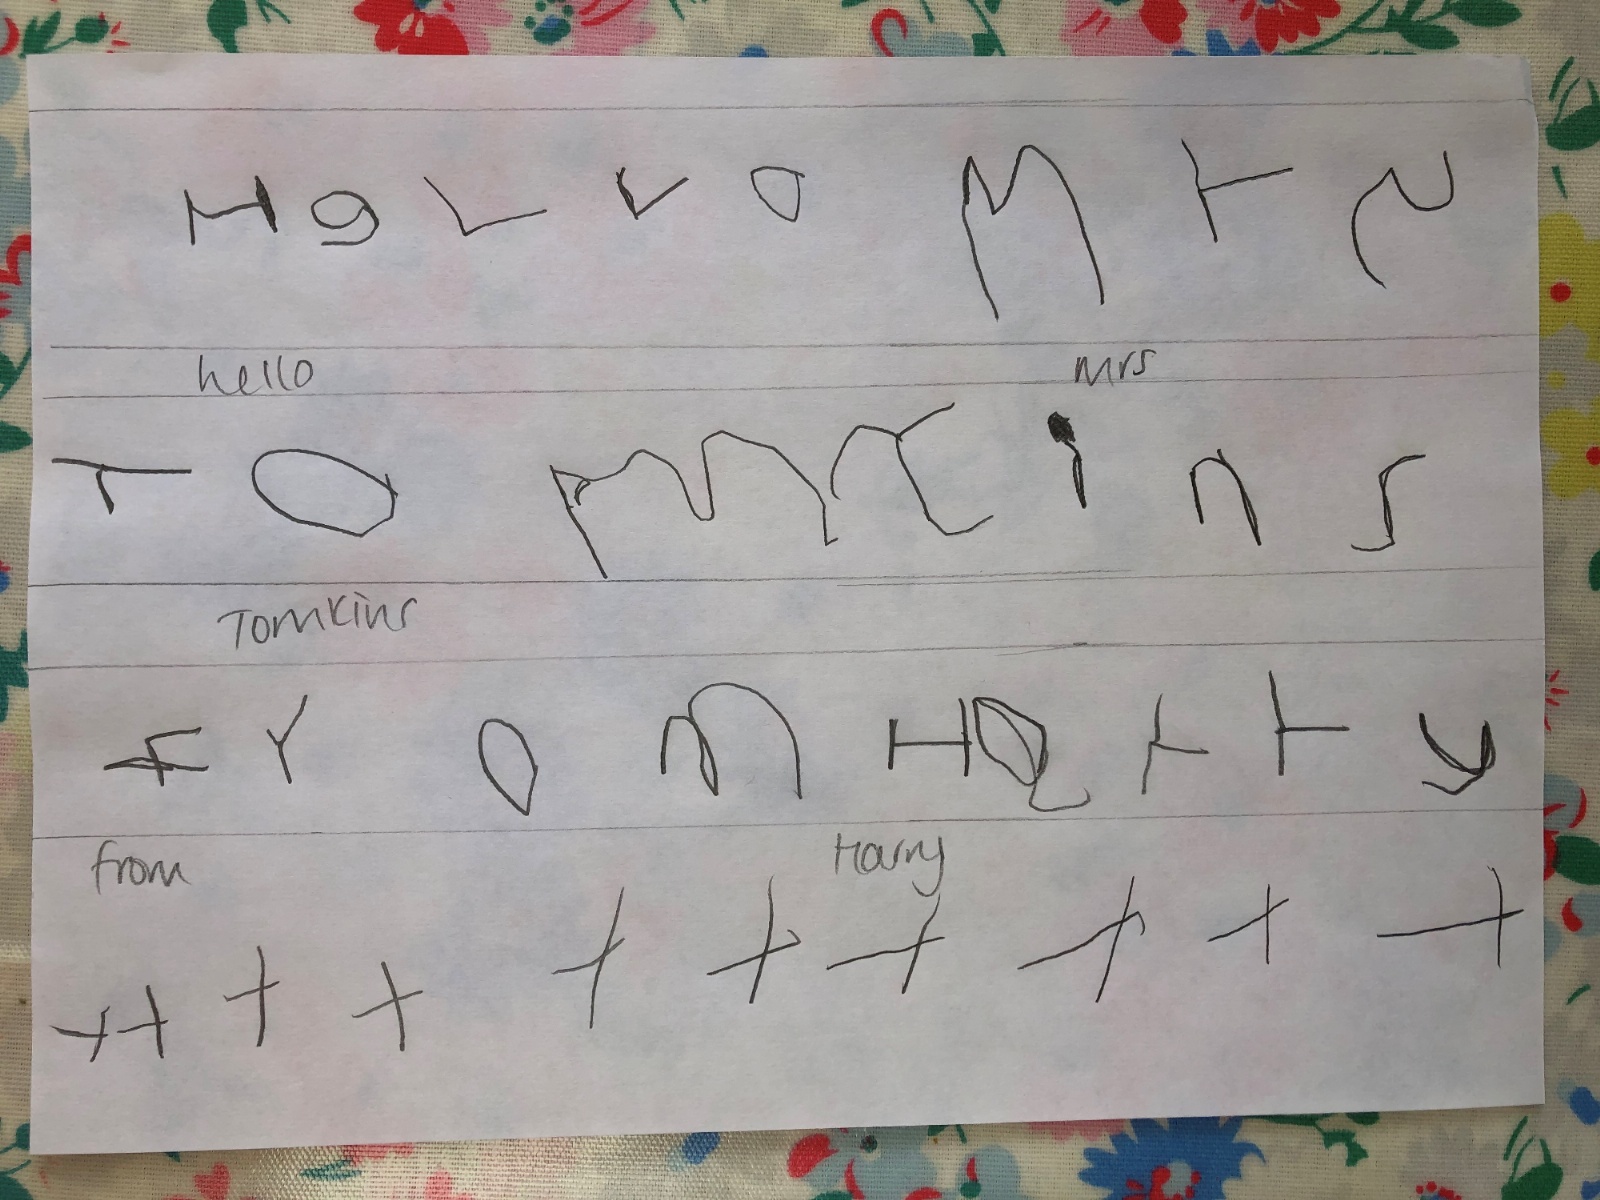 Hello Mrs
hello mrs
Tomkins
Tomkins
from Harry
from Harry
+ + + + + + + + + + +